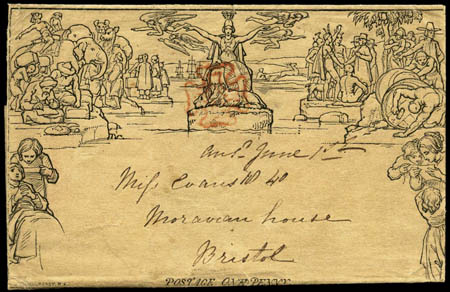 ansd June 1st
Miss Evans
Moravian house
Bristol
POSTAGE ONE PENNY.